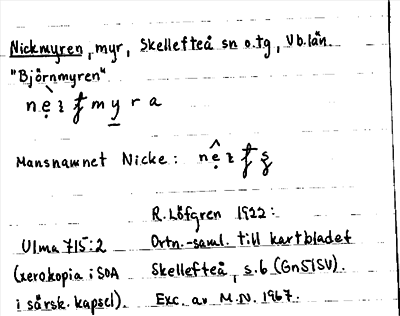 Nickmyren, myr, Skellefteå sn o. tg, Vb. län.
"Björnmyren"
m y r a
Mansnamnet Nicke:
R. Löfgren 1922:
Ulma 715:2 Ortn.-saml. till kartbladet
(xerokopia i SOA Skellefteå, s. 6 (Gn51SV).
i särsk. kapsel). Exc. av M.N. 1967.